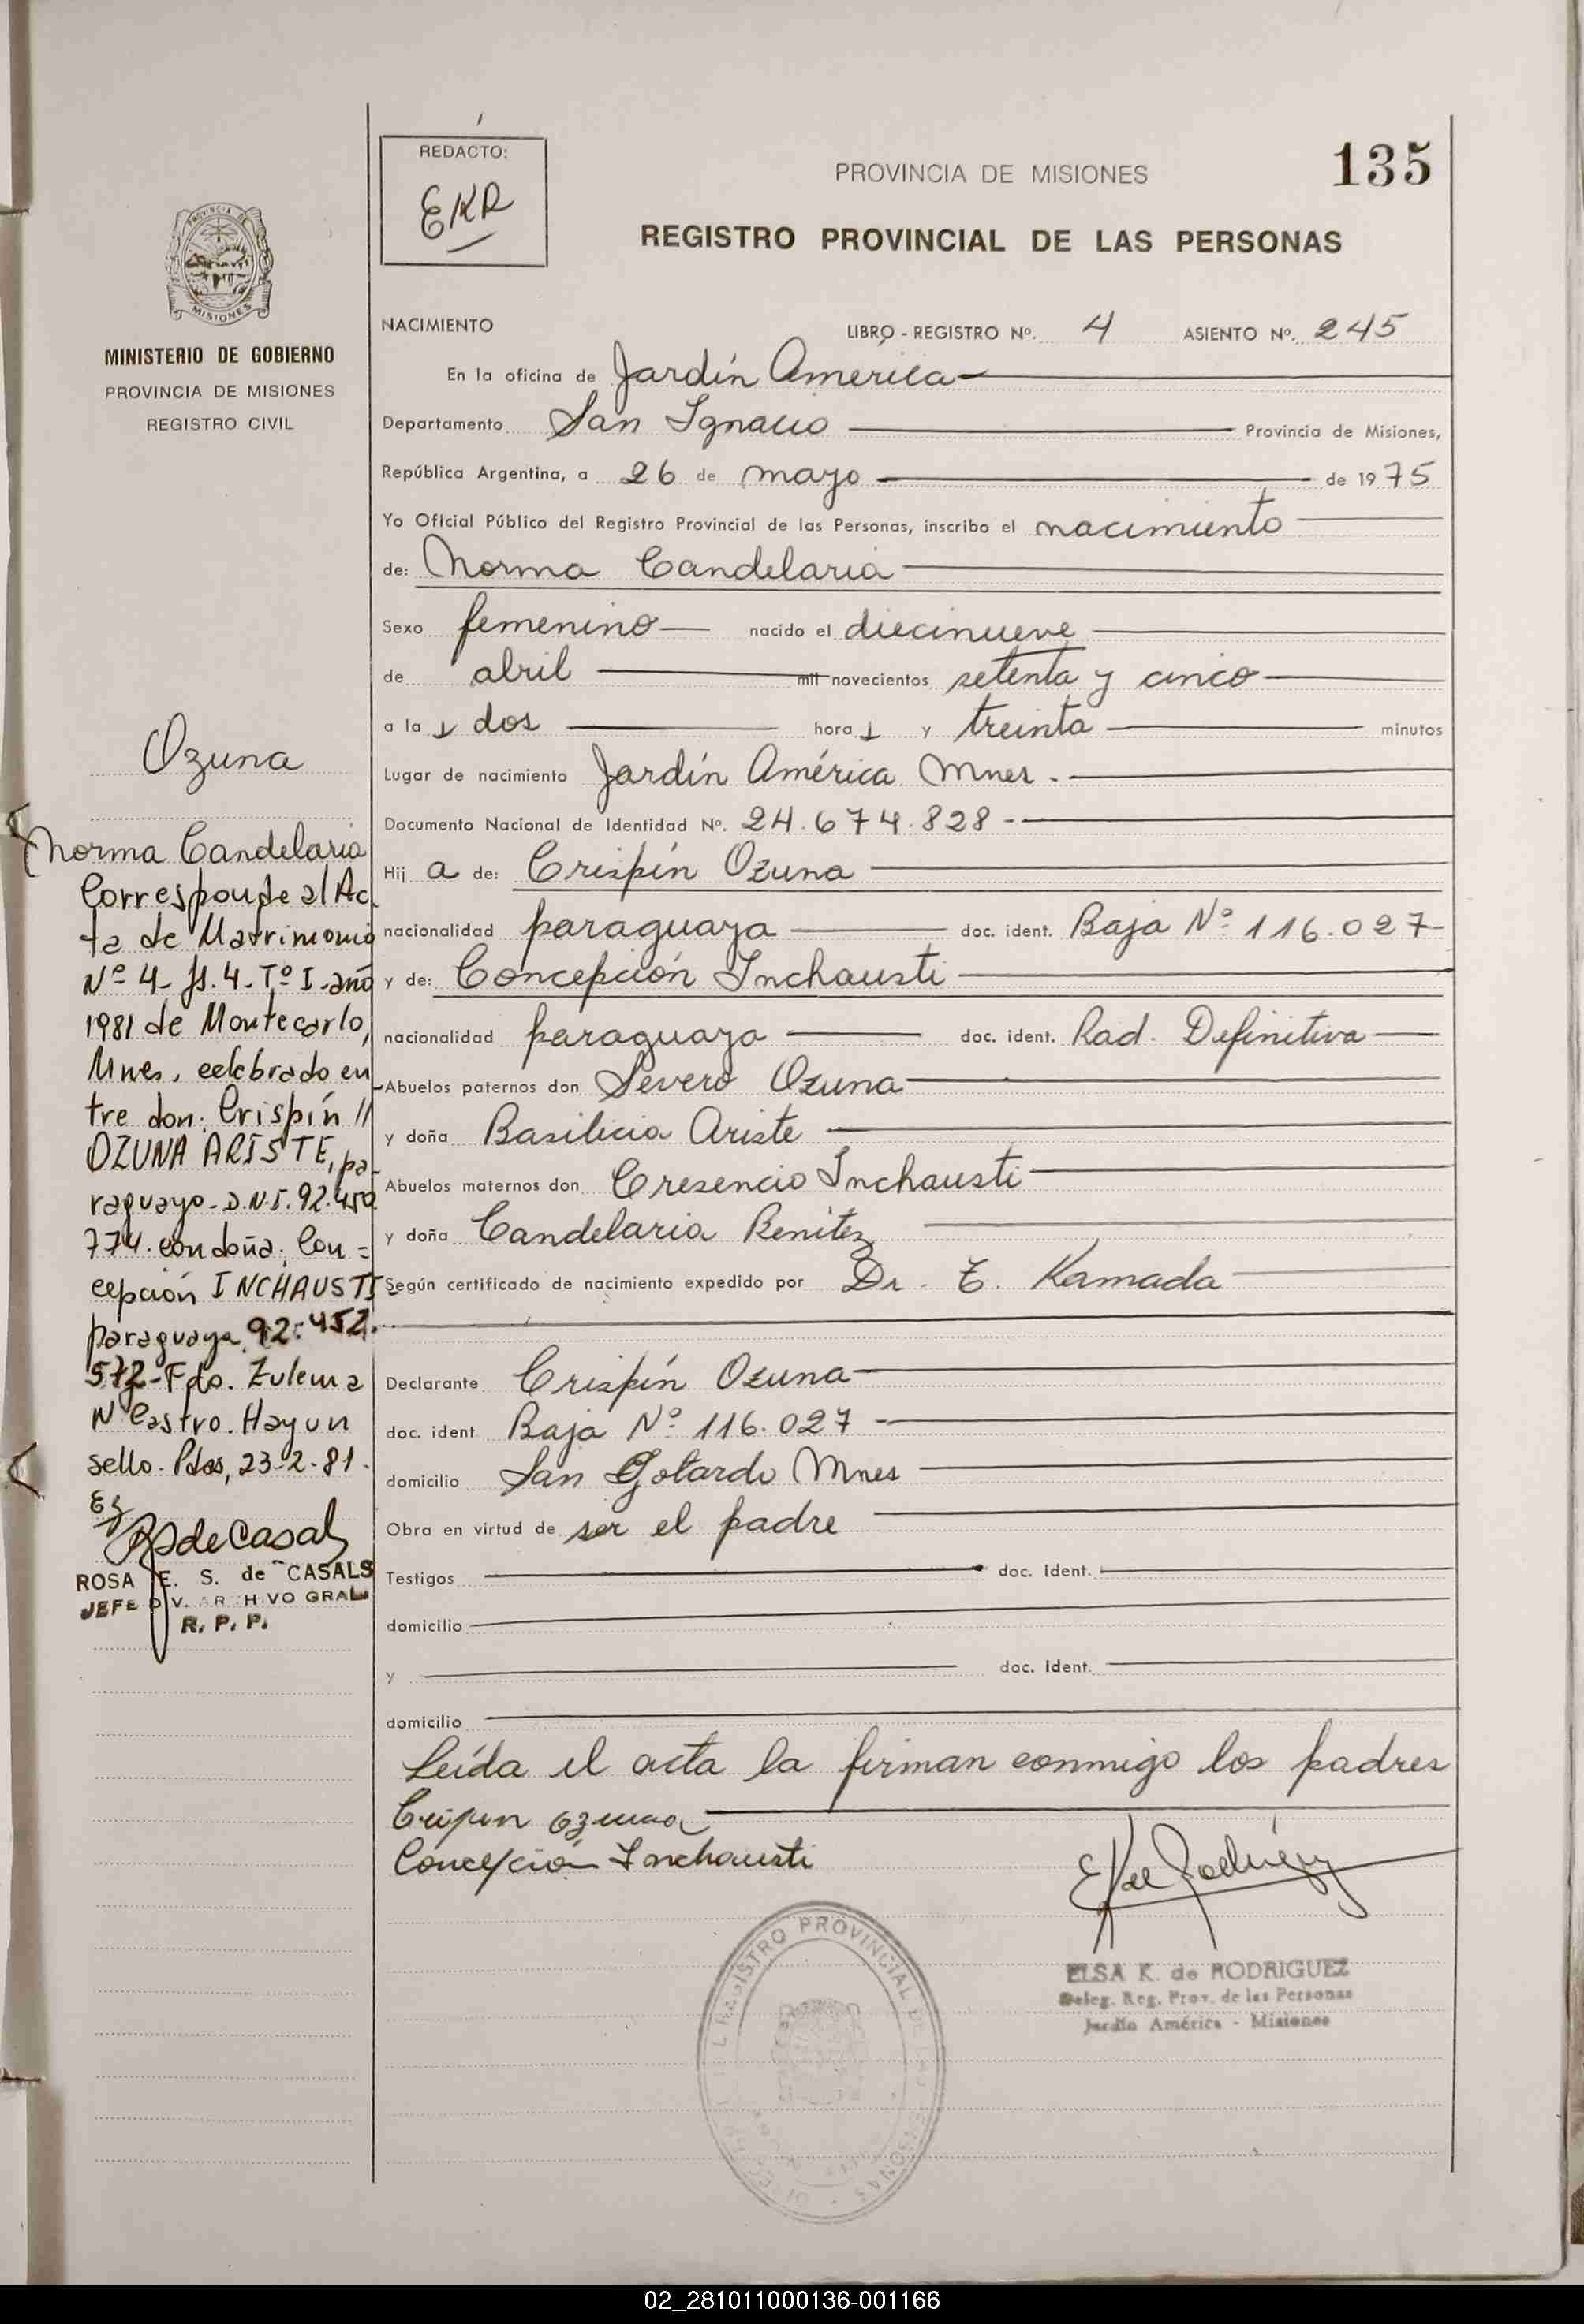 REDACTO:
EKR
PROVINCIA DE MISIONES
135
REGISTRO PROVINCIAL DE LAS PERSONAS
PROVINCIA DE
MISIONES
MINISTERIO DE GOBIERNO
PROVINCIA DE MISIONES
REGISTRO CIVIL
Ozuna
Norma Candelaria
Corresponde al Ac
ta de Matrimonio
Nº 4- fs. 4- Tº I- año
1981 de Montecarlo,
Mnes, celebrado en
tre don: Crispín //
OZUNA ARISTE, pa-
raguayo- D.N.I. 92.450
774. con doña: Con=
cepción INCHAUSTI-
paraguaya 92.452.
572- Fdo. Zulema
N Castro. Hay un
sello. Pdas, 23-2-81.
RSdeCasals
ROSA E. S. de CASALS
JEFE DIV. ARCHIVO GRAL.
R. P. P.
NACIMIENTO LIBRO - REGISTRO Nº. 4 ASIENTO Nº. 245
En la oficina de Jardín América
Departamento San Ignacio Provincia de Misiones,
República Argentina, a 26 de mayo de 1975
Yo Oficial Público del Registro Provincial de las Personas, inscribo el nacimiento
de: Norma Candelaria
Sexo femenino nacido el diecinueve
de abril mil novecientos setenta y cinco
a la s dos hora s y treinta minutos
Lugar de nacimiento Jardín América Mnes.
Documento Nacional de Identidad Nº. 24.674.828-
Hij a de: Crispín Ozuna
nacionalidad paraguaya doc. ident. Baja Nº 116.027-
y de: Concepción Inchausti
nacionalidad paraguaya doc. ident. Rad. Definitiva
Abuelos paternos don Severo Ozuna
y doña Basilicia Ariste
Abuelos maternos don Cresencio Inchausti
y doña Candelaria Benítez
Según certificado de nacimiento expedido por Dr. T. Kamada
Declarante Crispín Ozuna
doc. ident. Baja Nº 116.027-
domicilio San Gotardo Mnes
Obra en virtud de ser el padre
Testigos doc. ident.
domicilio
y doc. ident.
domicilio
Leída el acta la firman conmigo los padres
Crispin ozuna
Concepción Inchausti
EKdeRodríguez
ELSA K. de RODRIGUEZ
Deleg. Reg. Prov. de las Personas
Jardín América - Misiones
REGISTRO PROVINCIAL DE LAS PERSONAS
02_281011000136-001166